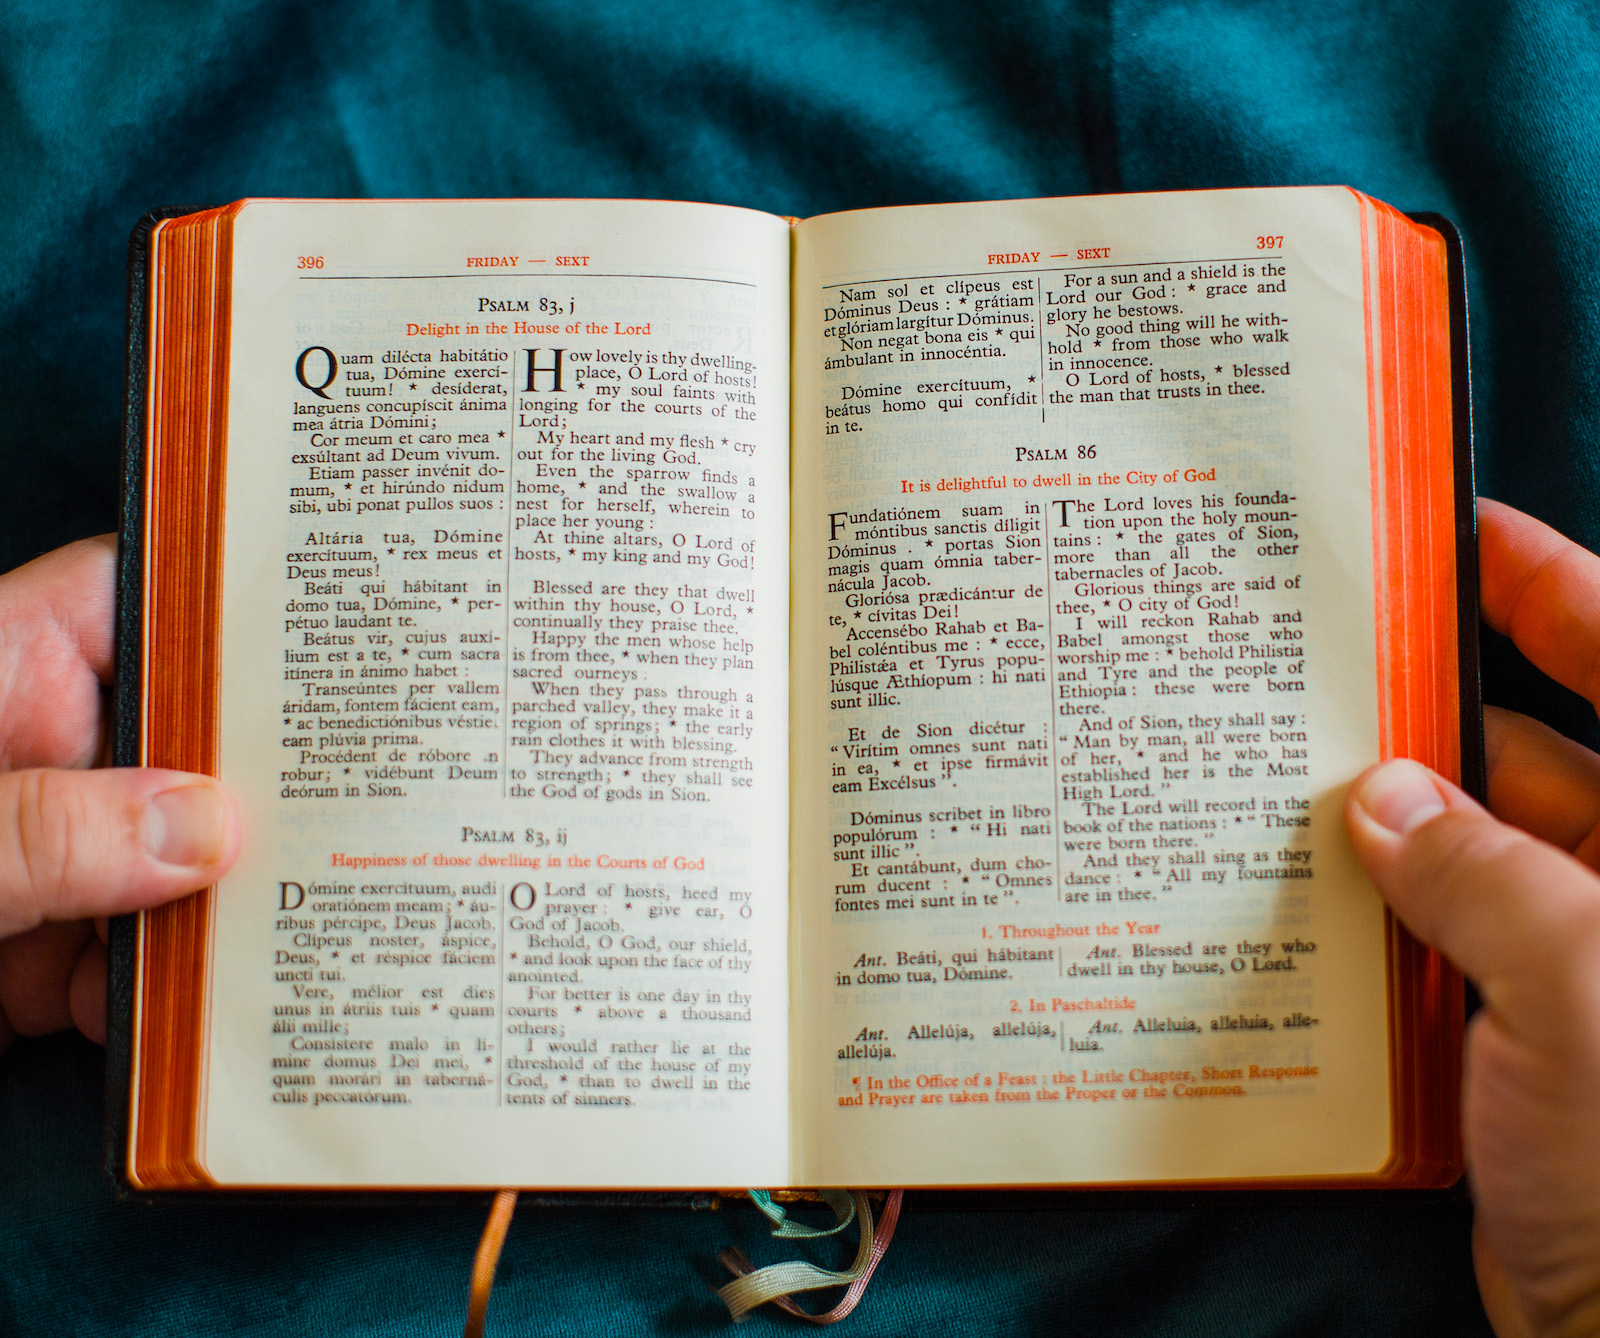 396
FRIDAY — SEXT
PSALM 83, j
Delight in the House of the Lord
Quam dilécta habitátio
tua, Dómine exercí-
tuum! * desíderat,
languens concupíscit ánima
mea átria Dómini;
Cor meum et caro mea *
exsúltant ad Deum vivum.
Etiam passer invénit do-
mum, * et hirúndo nidum
sibi, ubi ponat pullos suos :
Altária tua, Dómine
exercítuum, * rex meus et
Deus meus!
Beáti qui hábitant in
domo tua, Dómine, * per-
pétuo laudant te.
Beátus vir, cujus auxí-
lium est a te, * cum sacra
itínera in ánimo habet :
Transeúntes per vallem
áridam, fontem fácient eam,
* ac benedictiónibus véstiet
eam plúvia prima.
Procédent de róbore in
robur; * vidébunt Deum
deórum in Sion.
How lovely is thy dwelling-
place, O Lord of hosts!
* my soul faints with
longing for the courts of the
Lord;
My heart and my flesh * cry
out for the living God.
Even the sparrow finds a
home, * and the swallow a
nest for herself, wherein to
place her young :
At thine altars, O Lord of
hosts, * my king and my God!
Blessed are they that dwell
within thy house, O Lord, *
continually they praise thee.
Happy the men whose help
is from thee, * when they plan
sacred ourneys :
When they pass through a
parched valley, they make it a
region of springs; * the early
rain clothes it with blessing.
They advance from strength
to strength; * they shall see
the God of gods in Sion.
PSALM 83, ij
Happiness of those dwelling in the Courts of God
Dómine exercítuum, audi
oratiónem meam; * áu-
ribus pércipe, Deus Jacob.
Clípeus noster, áspice,
Deus, * et réspice fáciem
uncti tui.
Vere, mélior est dies
unus in átriis tuis * quam
álii mille;
Consístere malo in lí-
mine domus Dei mei, *
quam morári in taberná-
culis peccatórum.
O Lord of hosts, heed my
prayer : * give ear, O
God of Jacob.
Behold, O God, our shield,
* and look upon the face of thy
anointed.
For better is one day in thy
courts * above a thousand
others;
I would rather lie at the
threshold of the house of my
God, * than to dwell in the
tents of sinners.
FRIDAY — SEXT
397
Nam sol et clípeus est
Dóminus Deus : * grátiam
et glóriam largítur Dóminus.
Non negat bona eis * qui
ámbulant in innocéntia.
Dómine exercítuum, *
beátus homo qui confídit
in te.
For a sun and a shield is the
Lord our God : * grace and
glory he bestows.
No good thing will he with-
hold * from those who walk
in innocence.
O Lord of hosts, * blessed
the man that trusts in thee.
PSALM 86
It is delightful to dwell in the City of God
Fundatiónem suam in
móntibus sanctis díligit
Dóminus : * portas Sion
magis quam ómnia taber-
nácula Jacob.
Gloriósa prædicántur de
te, * cívitas Dei!
Accensébo Rahab et Ba-
bel coléntibus me : * ecce,
Philistǽa et Tyrus popu-
lúsque Æthíopum : hi nati
sunt illic.
Et de Sion dicétur :
“ Virítim omnes sunt nati
in ea, * et ipse firmávit
eam Excélsus ”.
Dóminus scribet in libro
populórum : * “ Hi nati
sunt illic ”.
Et cantábunt, dum cho-
rum ducent : * “ Omnes
fontes mei sunt in te ”.
The Lord loves his founda-
tion upon the holy moun-
tains : * the gates of Sion,
more than all the other
tabernacles of Jacob.
Glorious things are said of
thee, * O city of God!
I will reckon Rahab and
Babel amongst those who
worship me : * behold Philistia
and Tyre and the people of
Ethiopia : these were born
there.
And of Sion, they shall say :
“ Man by man, all were born
of her, * and he who has
established her is the Most
High Lord. ”
The Lord will record in the
book of the nations : * “ These
were born there. ”
And they shall sing as they
dance : * “ All my fountains
are in thee. ”
1. Throughout the Year
Ant. Beáti, qui hábitant
in domo tua, Dómine.
Ant. Blessed are they who
dwell in thy house, O Lord.
2. In Paschaltide
Ant. Allelúja, allelúja,
allelúja.
Ant. Alleluia, alleluia, alle-
luia.
¶ In the Office of a Feast : the Little Chapter, Short Response
and Prayer are taken from the Proper or the Common.